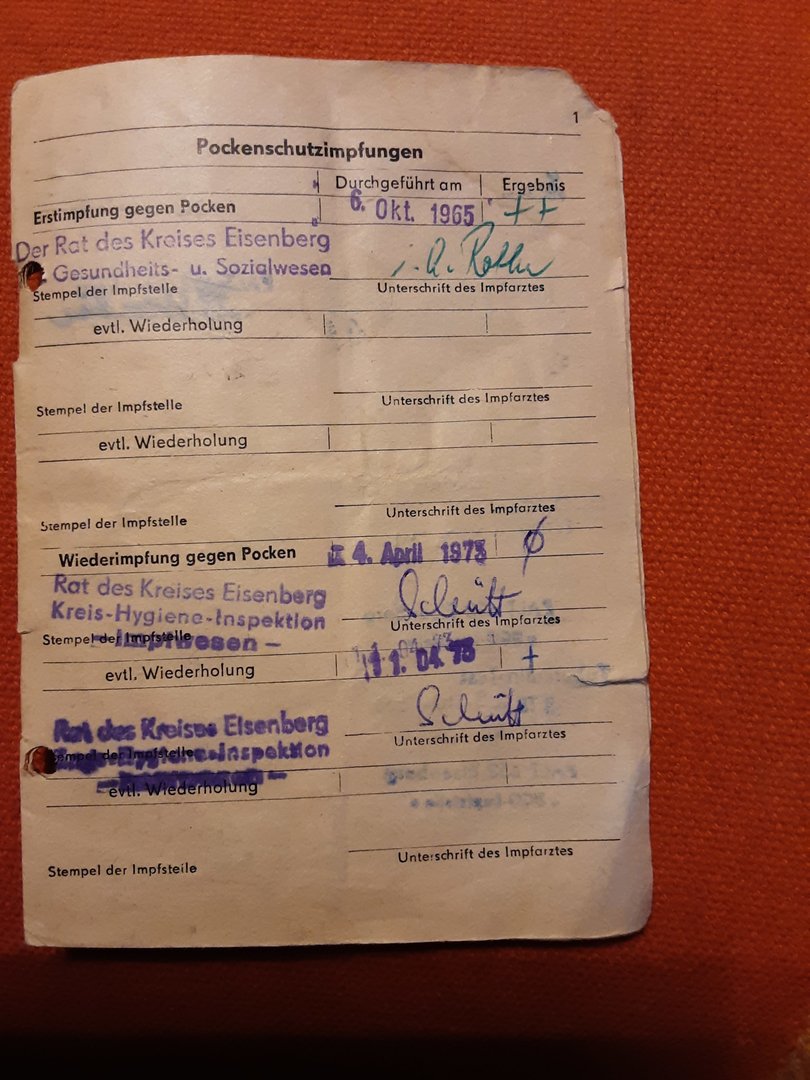 1
Pockenschutzimpfungen
Durchgeführt am Ergebnis
Erstimpfung gegen Pocken 6. Okt. 1965 ++
Der Rat des Kreises Eisenberg
Gesundheits- u. Sozialwesen
Stempel der Impfstelle Unterschrift des Impfarztes
evtl. Wiederholung
Stempel der Impfstelle Unterschrift des Impfarztes
evtl. Wiederholung
Stempel der Impfstelle Unterschrift des Impfarztes
Wiederimpfung gegen Pocken 4. April 1973 ø
Rat des Kreises Eisenberg
Kreis-Hygiene-Inspektion
Stempel der Impfstelle Unterschrift des Impfarztes
- Impfwesen -
evtl. Wiederholung 11. 04. 73 +
Rat des Kreises Eisenberg
Stempel der Impfstelle Unterschrift des Impfarztes
Hygiene-Inspektion
evtl. Wiederholung
Stempel der Impfstelle Unterschrift des Impfarztes